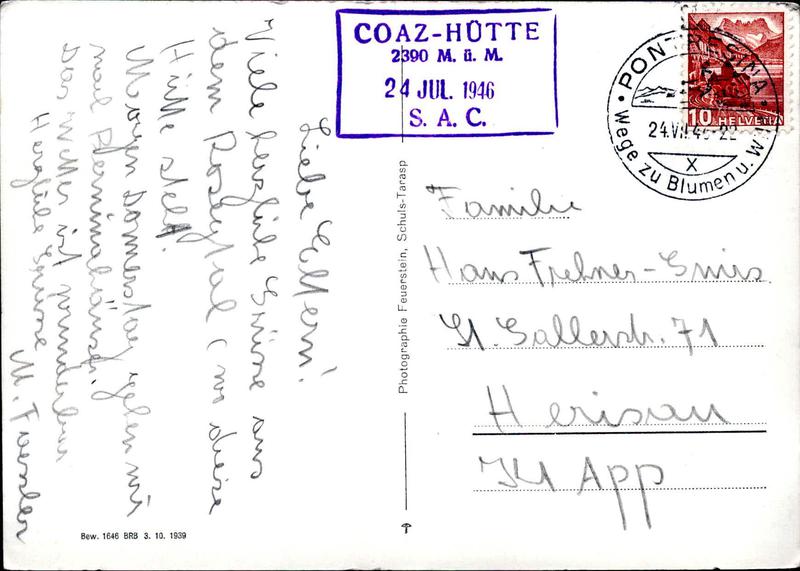 COAZ-HÜTTE
2390 M. ü. M.
24 JUL. 1946
S. A. C.
PONTRESINA
24.VII.46-22
X
Wege zu Blumen u. W
10 HELVETIA
Liebe Eltern!
Viele herzliche Grüsse aus
dem Rosegtal (wo diese
Hütte steht.
Morgen Donnerstag gehen wir
nach Berninahäuser.
Das Wetter ist wunderbar
Herzliche Grüsse
M. Faessler
Photographie Feuerstein, Schuls-Tarasp
Familie
Hans Frehner
St. Gallerstr. 71
Herisau
Kt App
Bew. 1646 BRB 3. 10. 1939